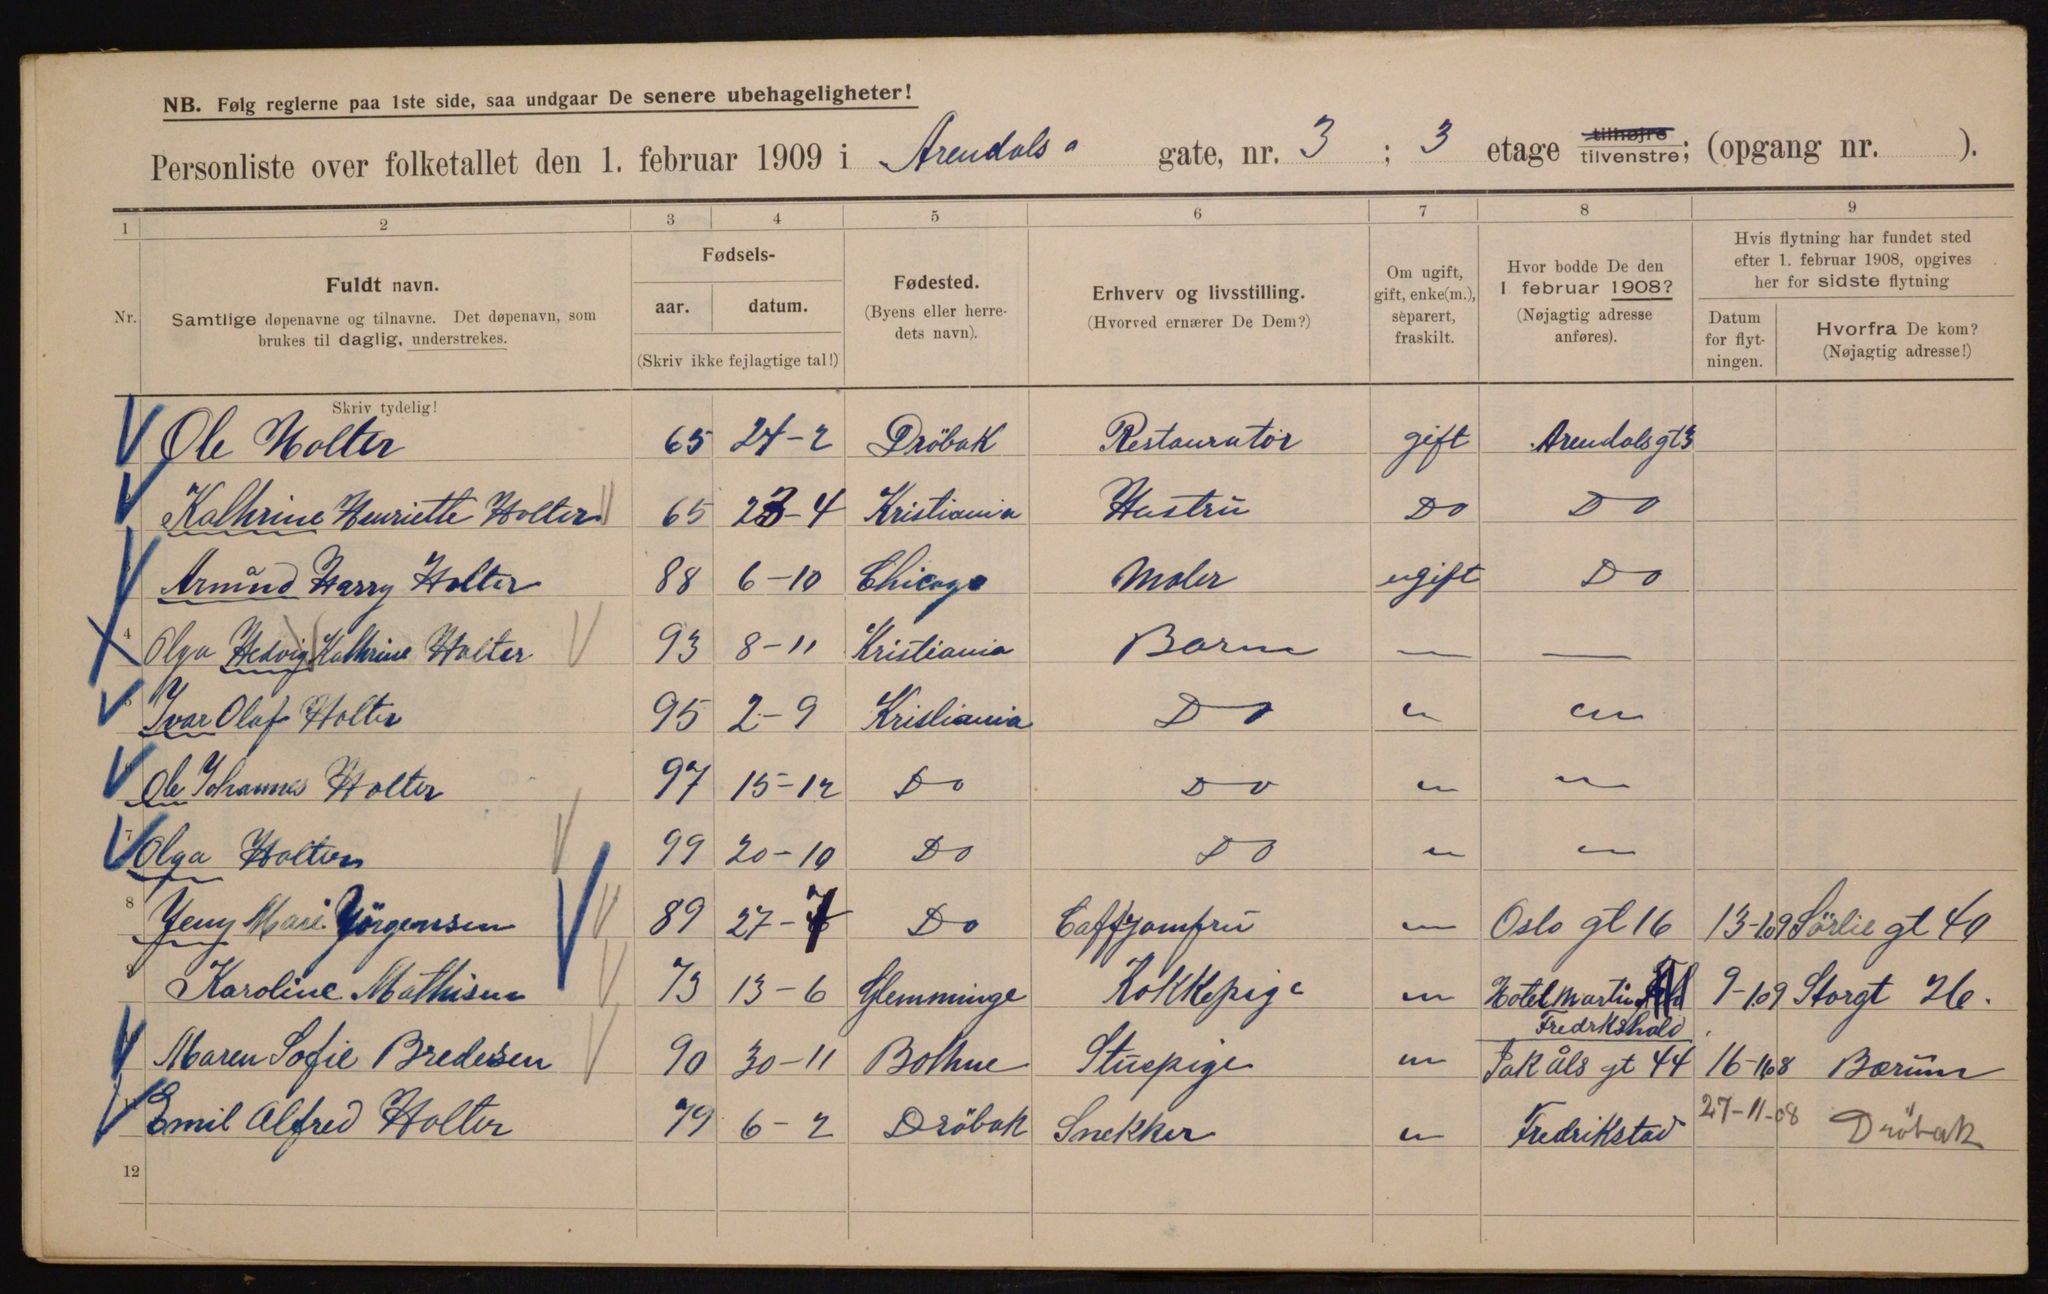 NB. Følg reglerne paa 1ste side, saa undgaar De senere ubehageligheter!
Personliste over folketallet den 1. februar 1909 i Arendals gate, nr. 3 ; 3 etage tilhøjre tilvenstre; (opgang nr. ).
1 2 3 4 5 6 7 8 9
Nr. Fuldt navn. Samtlige døpenavne og tilnavne. Det døpenavn, som brukes til daglig, understrekes. Skriv tydelig!
Fødsels- aar. datum. (Skriv ikke fejlagtige tal!)
Fødested. (Byens eller herredets navn).
Erhverv og livsstilling. (Hvorved ernærer De Dem?)
Om ugift, gift, enke(m.), separert, fraskilt.
Hvor bodde De den 1 februar 1908? (Nøjagtig adresse anføres).
Hvis flytning har fundet sted efter 1. februar 1908, opgives her for sidste flytning
Datum for flytningen. Hvorfra De kom? (Nøjagtig adresse!)
Ole Holter 65 24-2 Dröbak Restauratör gift Arendalsgt 3
Kathrine Henriette Holter 65 23-4 Kristiania Hustru Do Do
Arnund Harry Holter 88 6-10 Chicago Maler ugift Do
4 Olga Hedvig Kathrine Holter 93 8-11 Kristiania Barn — —
5 Ivar Olaf Holter 95 2-9 Kristiania Do " "
6 Ole Johannes Holter 97 15-12 Do Do " "
7 Olga Holter 99 20-10 Do Do " "
8 Jeny Marie Jörgensen 89 27-7 Do Caffejomfru — Oslo gt 16 13-1.09 Sörlie gt 40
9 Karoline Mathisen 73 13-6 Glemminge Kokkepige " Hotel Martin Fredrikshald 9-1.09 Storgt 26.
Maren Sofie Bredesen 90 30-11 Bothne Stuepige " Jak Åls gt 44 16-11.08 Bærum
Emil Alfred Holter 79 6-2 Dröbak Snekker " Fredrikstad 27-11-08 Dröbak
12